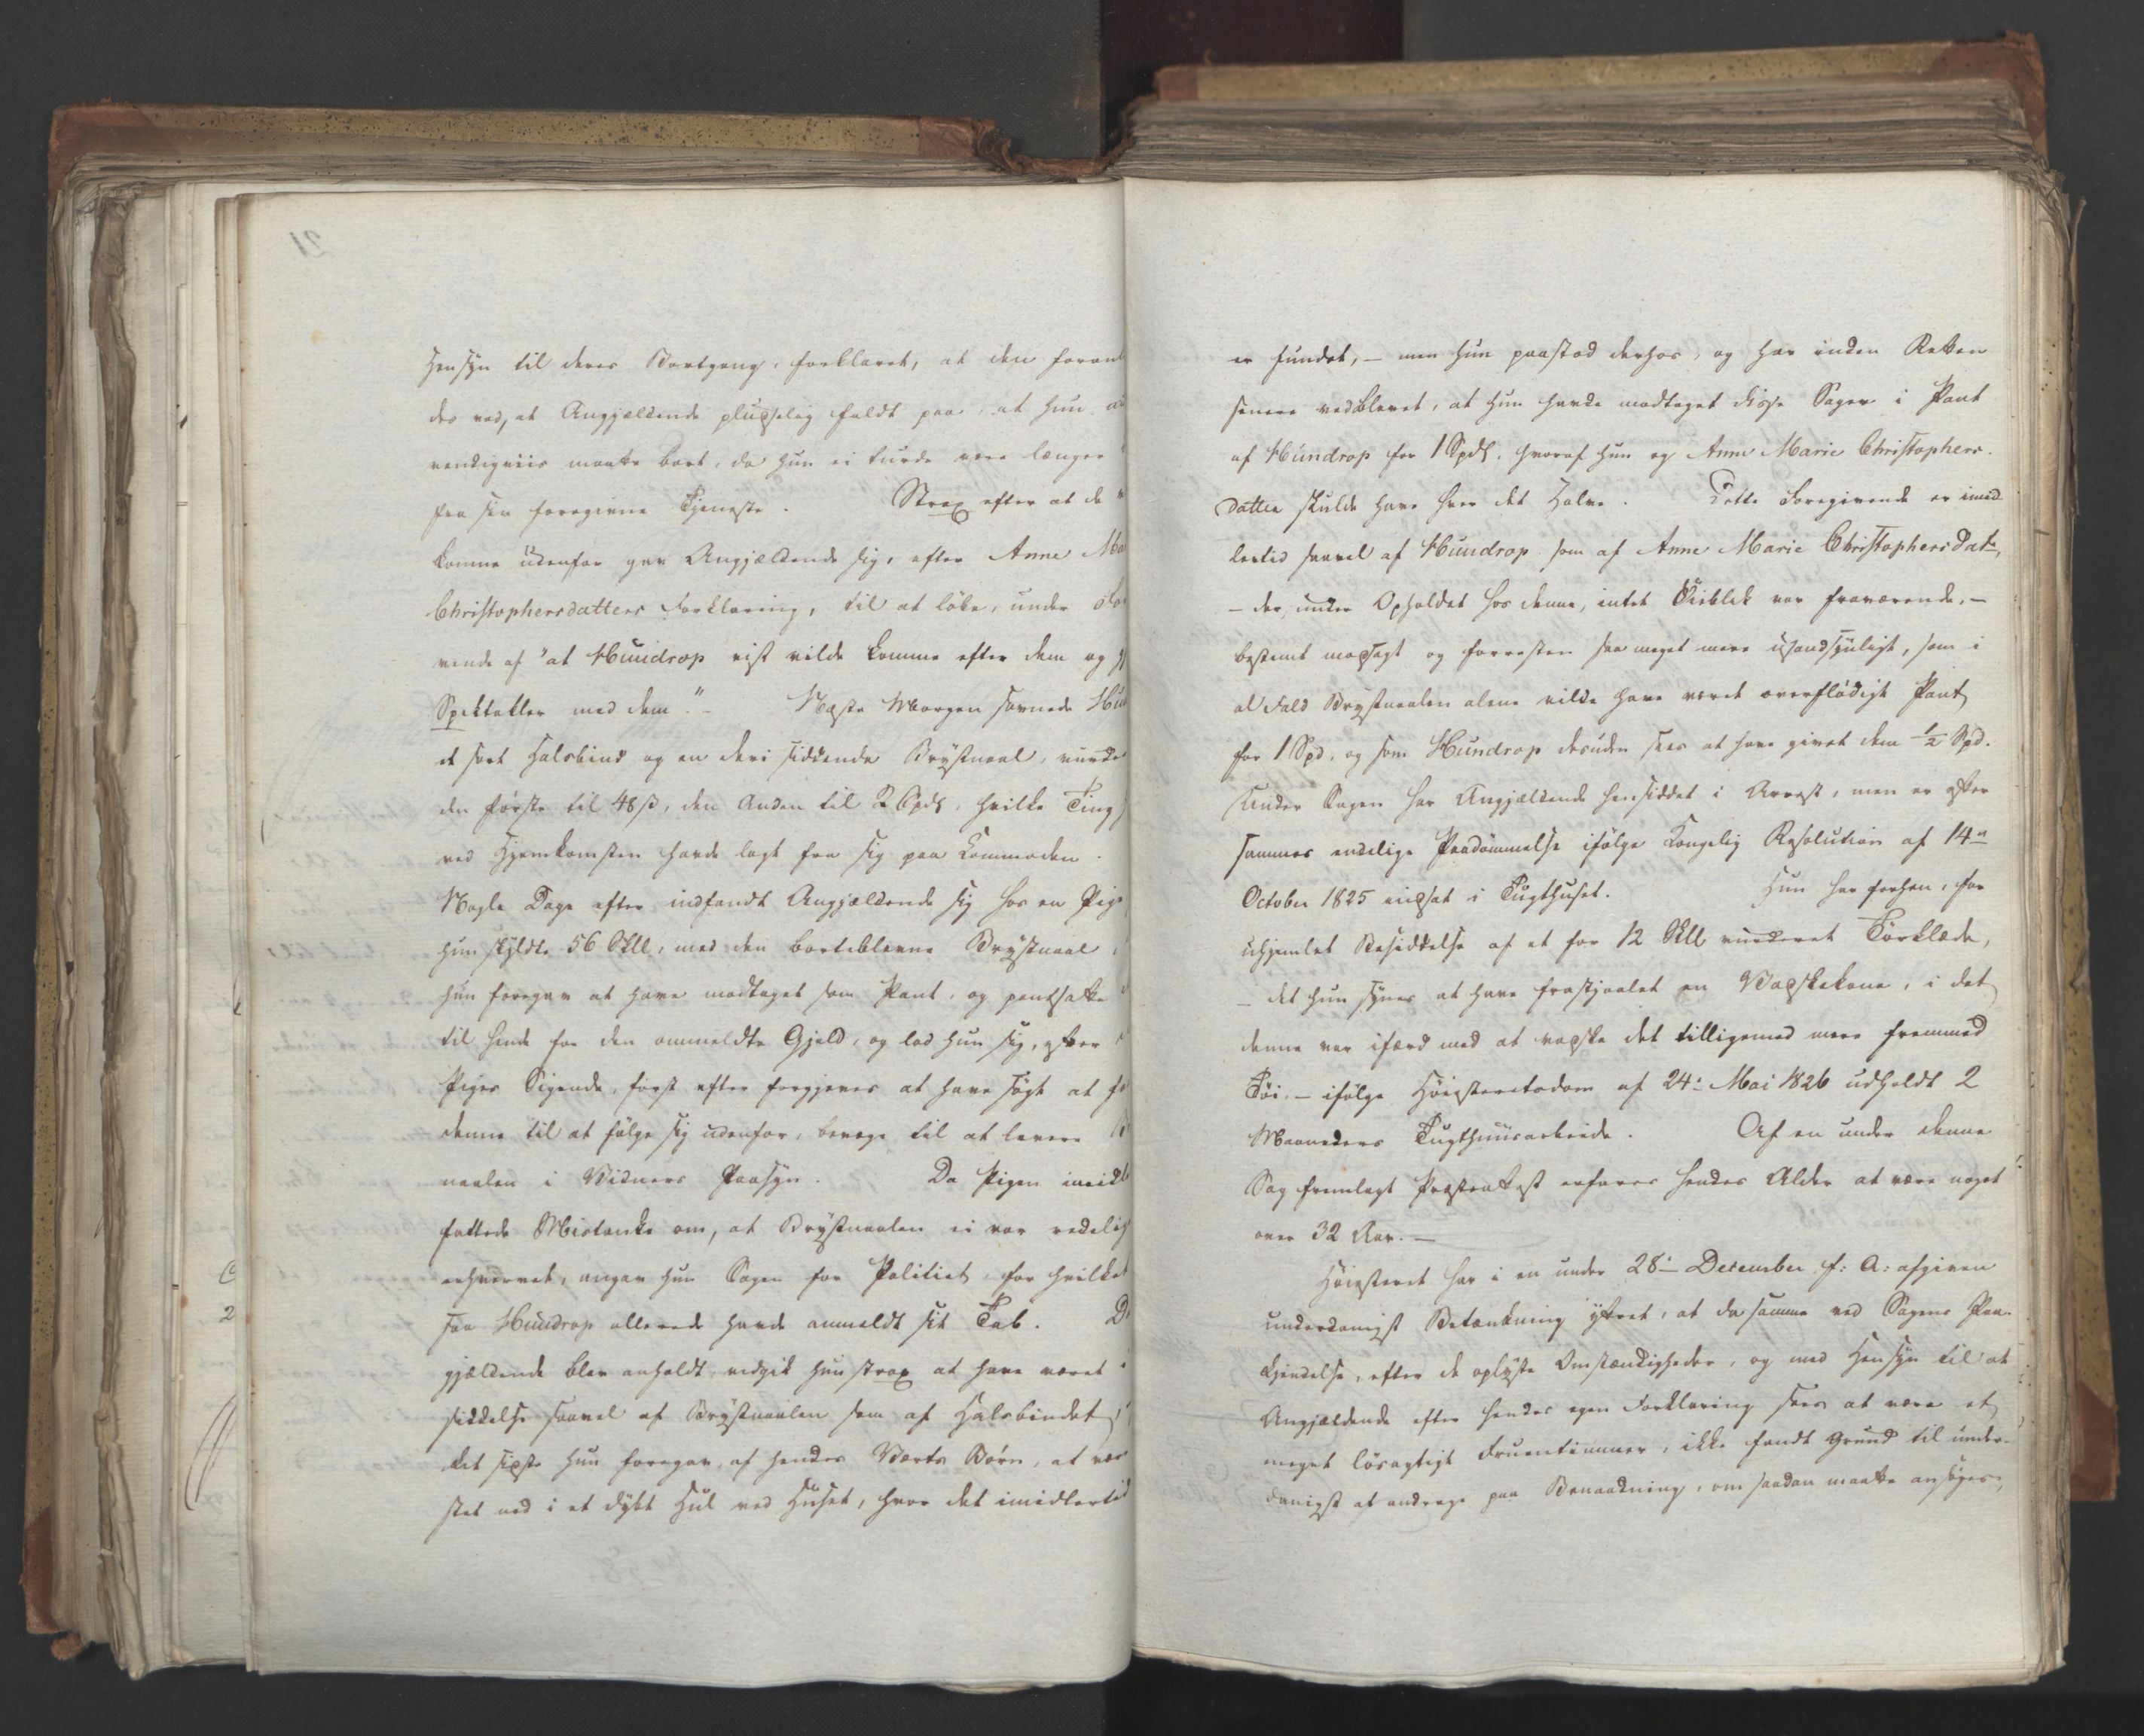 Hensyn til deres Bortgang, forklaret, at den foran
des ved, at Angjældende pludselig faldt paa at hun
vendigviis maatte bort, da hun ei turde være længer
fra sin foregivne Tjeneste. Strax efter at de
komne udenfor gav Angjældende sig, efter Anne Ma
Christophersdatters Forklaring, til at løbe, under
vende af "at Hundrop vist vilde komme efter dem og
Spektakler med dem". Næste Morgen savnede Hun
et sort Halsbind og en deri siddende Brystnaal, vurde
den første til 48 ß, den Anden til 2 Spd, hvilke Ting
ved Hjemkomsten havde lagt fra sig paa Kommoden.
Nogle Dage efter indfandt Angjældende sig hos en Pige
hun skyldte 56 Skll, med den bortblevne Brystnaal
hun foregav at have modtaget som Pant, og pantsatte
til hende for den anmeldte Gjeld, og lod hun sig, efter
Piges Sigende, først efter forgjeves at have søgt at fo
denne til at følge sig udenfor, bevæge til at levere
naalen i Vidners Paasyn. Da Pigen imidl
fattede Mistanke om, at Brystnaalen ei var redelig
erhvervet, angav hun Sagen for Politiet, for hvilket
saa Hundrop allerede havde anmeldt sit Tab. D
gjældende blev anholdt vedgik hun strax at have været
siddelse saavel af Brystnaalen som af Halsbindet,
det sidste hun foregav, af hendes Værts Børn, at vær
stet ned i et dybt Hul ved Huset, hvor det imidlertid
er fundet, – men hun paastod derhos, og har inden Retten
senere vedblevet, at hun havde modtaget disse Sager i Pant
af Hundrop for 1 Spd, hvoraf hun og Anne Marie Christophers-
datter skulde have hver det Halve. Dette Foregivende er imid-
lertid saavel af Hundrop som af Anne Marie Christophersdatr,
– der, under Opholdet hos denne, intet Öieblik var fraværende, –
bestemt modsagt og forresten saa meget mere usandsynligt, som i
al Fald Brystnaalen alene vilde have været overflødigt Pant
for 1 Spd. og som Hundrop desuden sees at have givet dem ½ Spd.
Under Sagen har Angjældende hensiddet i Arrest, men er efter
sammes endelige Paadømmelse ifølge Kongelig Resolution af 14de
October 1825 indsat i Tugthuset. Hun har forhen, for
uhjemlet Besiddelse af et for 12 Skll vurderet Törklæde,
– det hun synes at have frastjaalet en Vadskekone, i det
denne var ifærd med at vadske det tilligemed mere fremmed
Töi, – ifølge Höiesteretsdom af 24: Mai 1826 udholdt 2
Maaneders Tugthuusarbeide. Af en under denne
Sag fremlagt Præsteattest erfares hendes Alder at være noget
over 32 Aar. –
Höiesteret har i en under 28: December f: A: afgiven
underdanigst Betænkning yttret, at da samme ved Sagens Paa-
kjendelse, efter de oplyste Omstændigheder, og med Hensyn til at
Angjældende efter hendes egen Forklaring sees at være et
meget løsagtigt Fruentimmer, ikke fandt Grund til under-
danigst at andrage paa Benaadning, om saadan maatte ansøges,